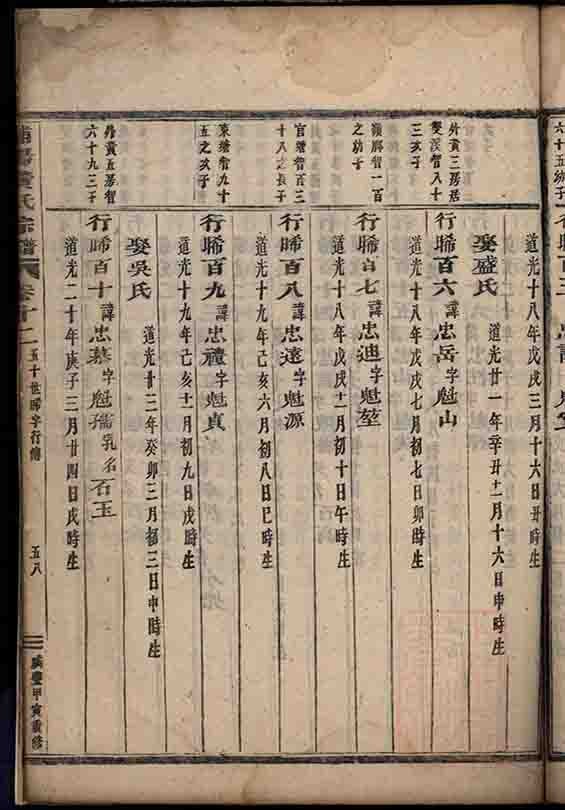 六十五幼子
道光十八年戊戌三月十六日丑時生
娶盛氏 道光廿一年辛丑十二月十六日申時生
外黃三房居
雙溪智八十
三次子
行晞百六 諱忠岳 字魁山
道光十八年戊戌七月初七日卯時生
智一百
之幼子
行晞百七 諱忠迪 字魁堃
道光十八年戊戌十一月初十日午時生
官塘智百三
十八之長子
行晞百八 諱忠遠 字魁源
道光十九年己亥六月初八日巳時生
東塘智九十
五之次子
行晞百九 諱忠禮 字魁貞
道光十九年己亥十一月初九日戌時生
娶吳氏 道光廿三年癸卯三月初三日申時生
外黃五房智
六十九三子
行晞百十 諱忠慕 字魁孺 乳名石玉
道光二十年庚子三月廿四日戌時生
黃氏宗譜 卷十二 五十世晞字行傳 五八 咸豐甲寅重修